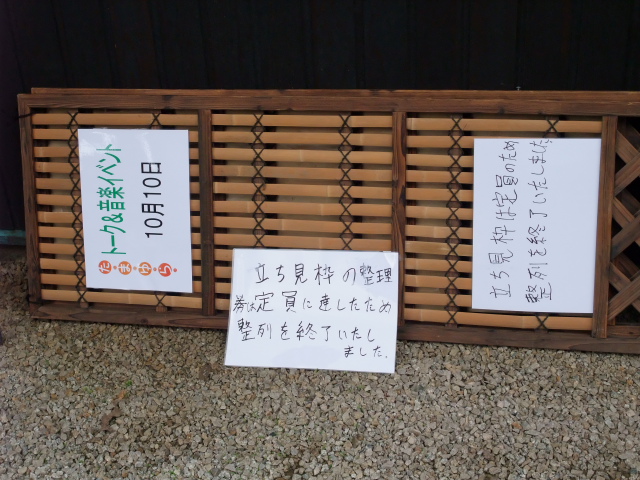 た・ま・ゆ・ら・
トーク&音楽イベント
10月10日
立ち見枠の整理
券は定員に達したため
整列を終了いたし
ました.
立ち見枠は定員のため
整列を終了いたしました